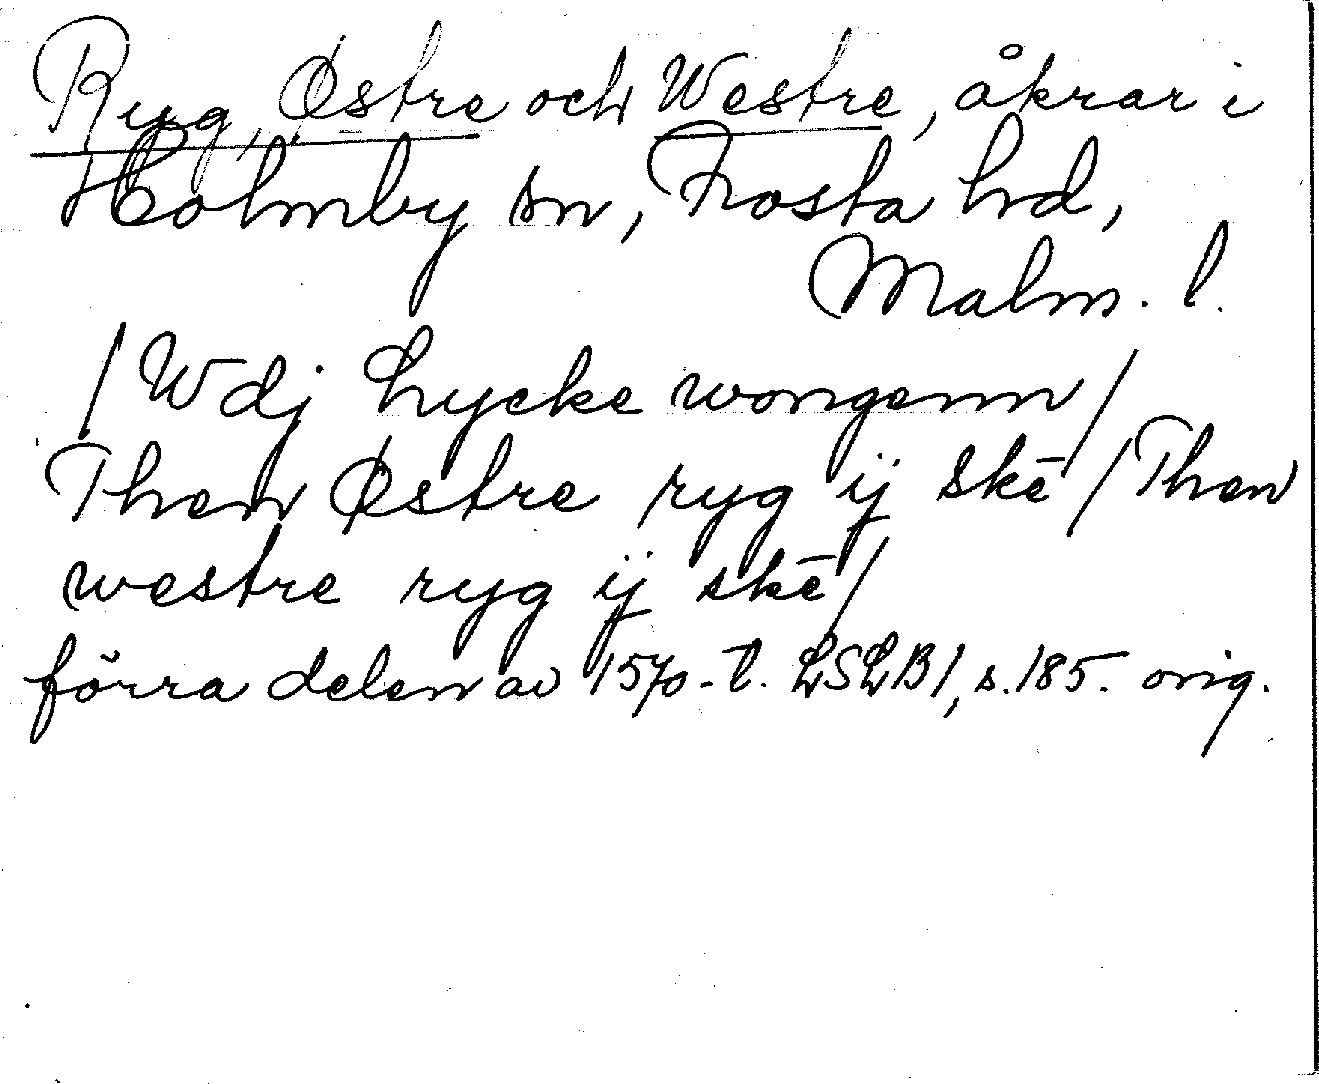 Ryg, Østre och Westre, åkrar i
Holmby sn, Frosta hd,
Malm. l.
/ Wdj Lycke wongenn /
Then Østre ryg ij skē / Then
westre ryg ij skē /
förra delen av 1570-t. LSLB 1, s. 185. orig.